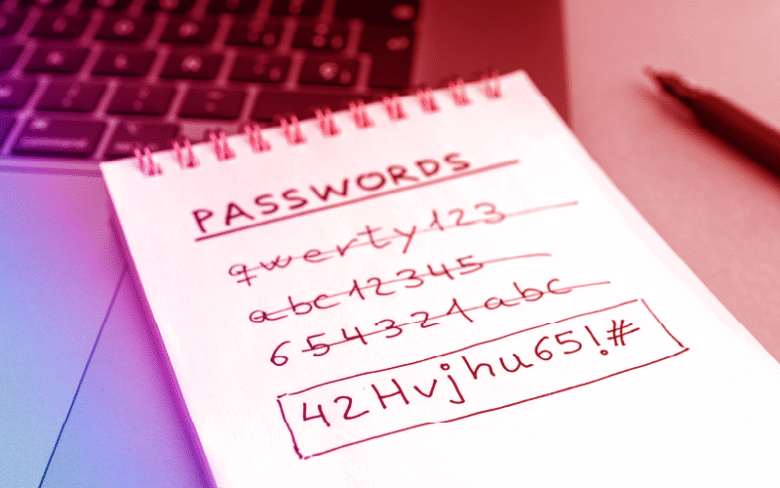 PASSWORDS
qwerty123
abc12345
654321abc
42Hvjhu65!#